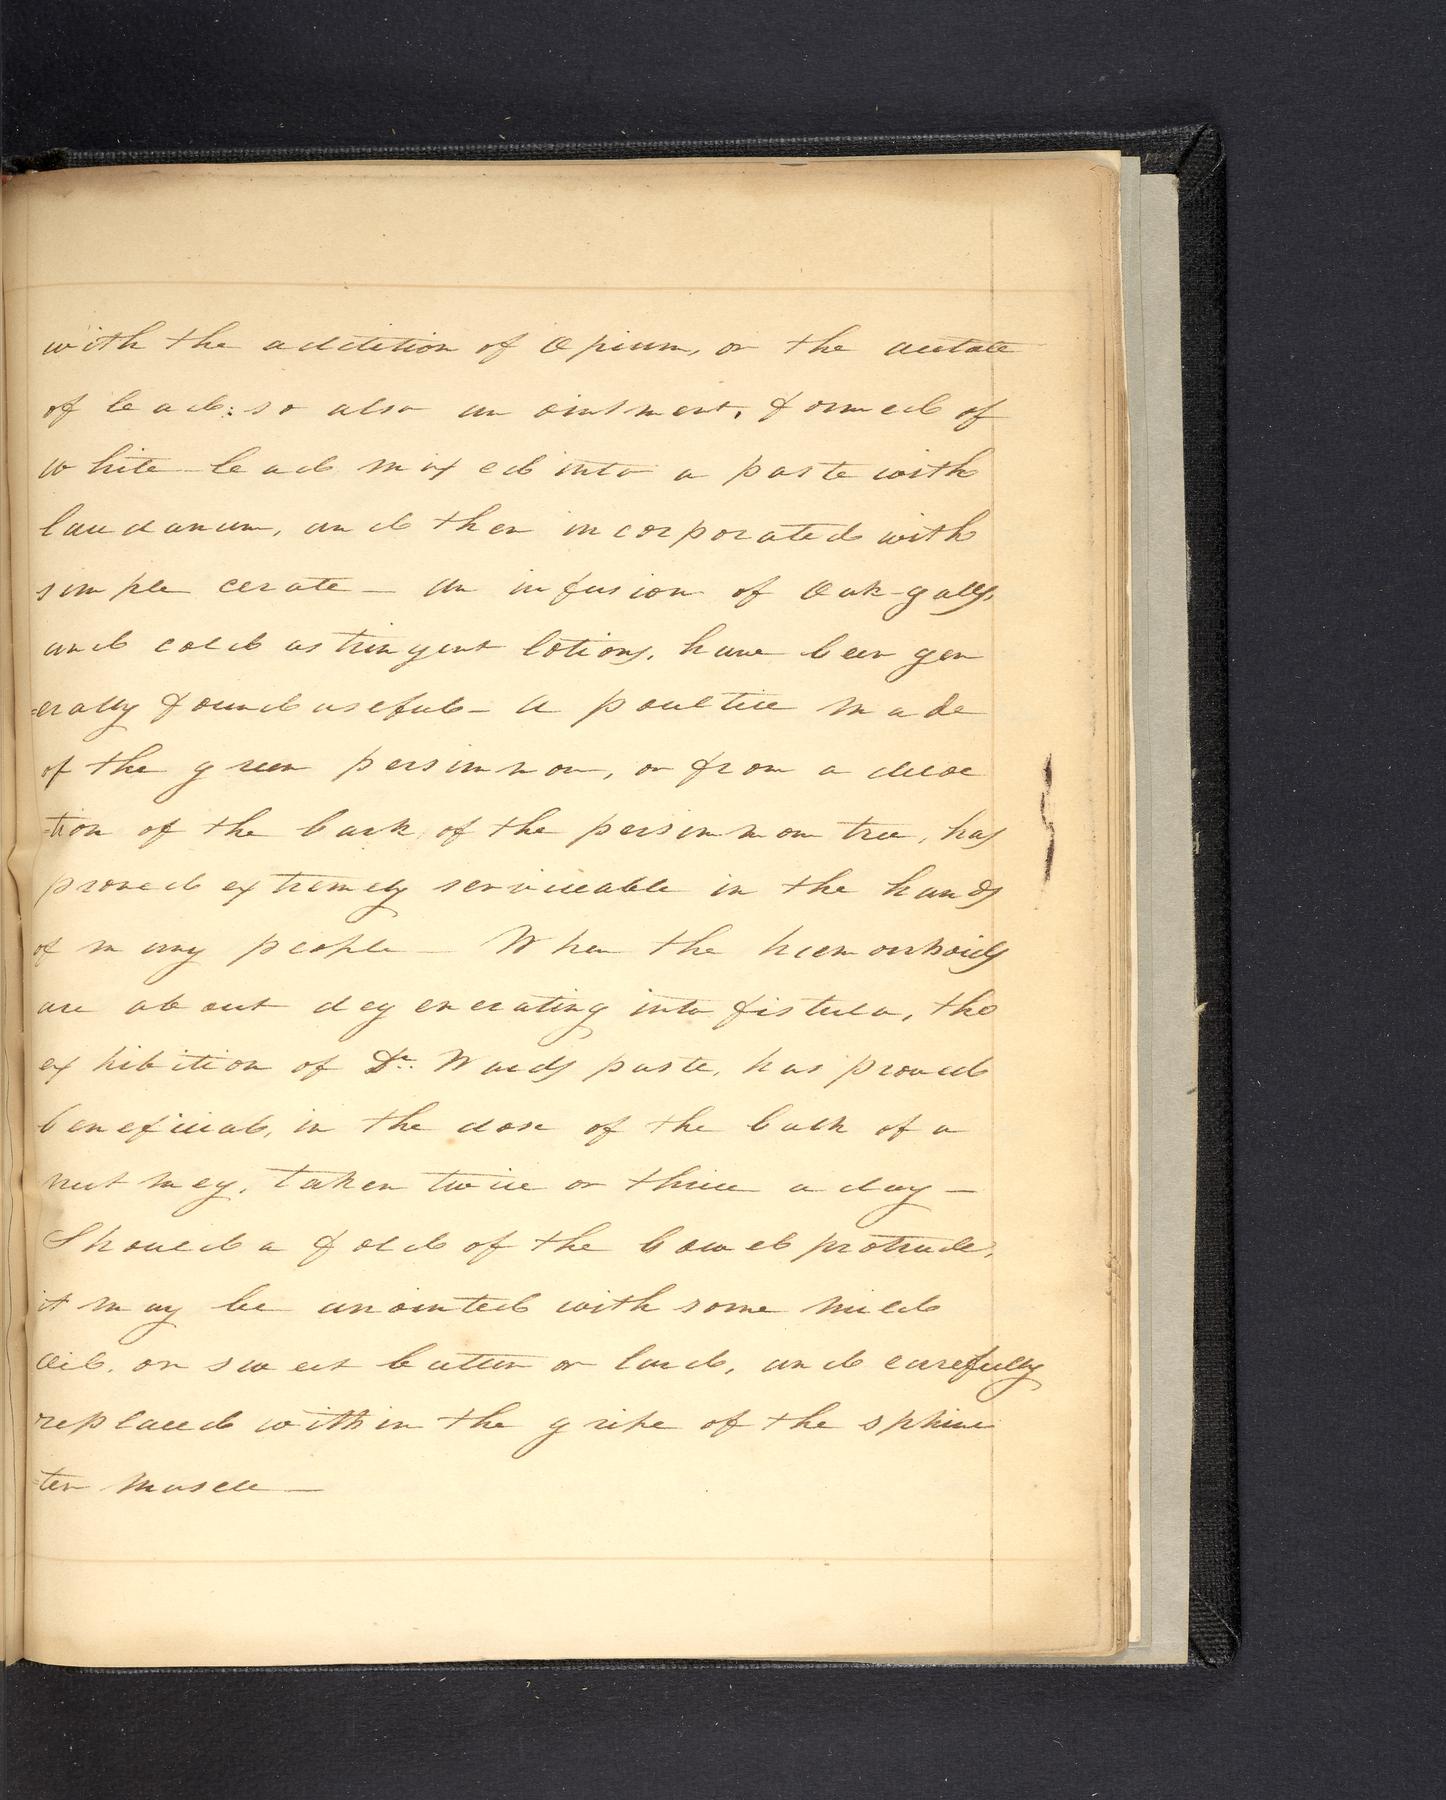 with the addition of Opium, or the acetate
of lead: so also an ointment, formed of
white-lead mixed into a paste with
laudanum, and then incorporated with
simple cerate — An infusion of Oak-galls,
and cold astringent lotions, have been gen
=erally found useful — A poultice made
of the green persimmon, or from a decoc
=tion of the bark, of the persimmon tree, has
proved extremely serviceable in the hands
of many people — When the hæmorrhoids
are about degenerating into fistula, the
exhibition of Dr. Wards paste, has proved
beneficial, in the dose of the bulk of a
nutmeg, taken twice or thrice a day —
Should a fold of the bowel protrude,
it may be anointed with some mild
oil, or sweet butter or lard, and carefully
replaced within the gripe of the sphinc
=ter muscle —